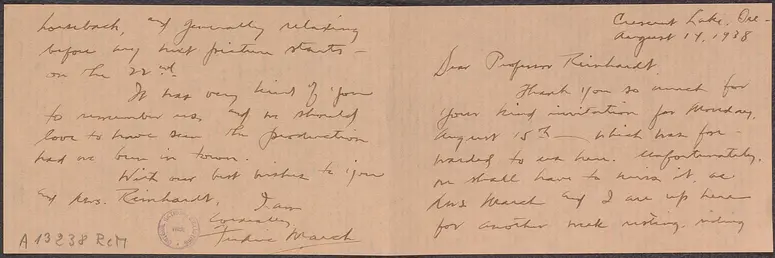 Crescent Lake, Ore –
August 14, 1938
Dear Professor Reinhardt.
Thank you so much for
your kind invitation for Monday,
August 15th – which was for-
warded to us here. Unfortunately,
we shall have to miss it, as
Mrs March and I are up here
for another week resting, riding
horseback, and generally relaxing
before my next picture starts –
on the 22nd.
It was very kind of you
to remember us, and we should
love to have seen the production
had we been in town.
With our best wishes to you
and Mrs. Reinhardt, I am
Cordially
Fredric March
A 13238 ReM